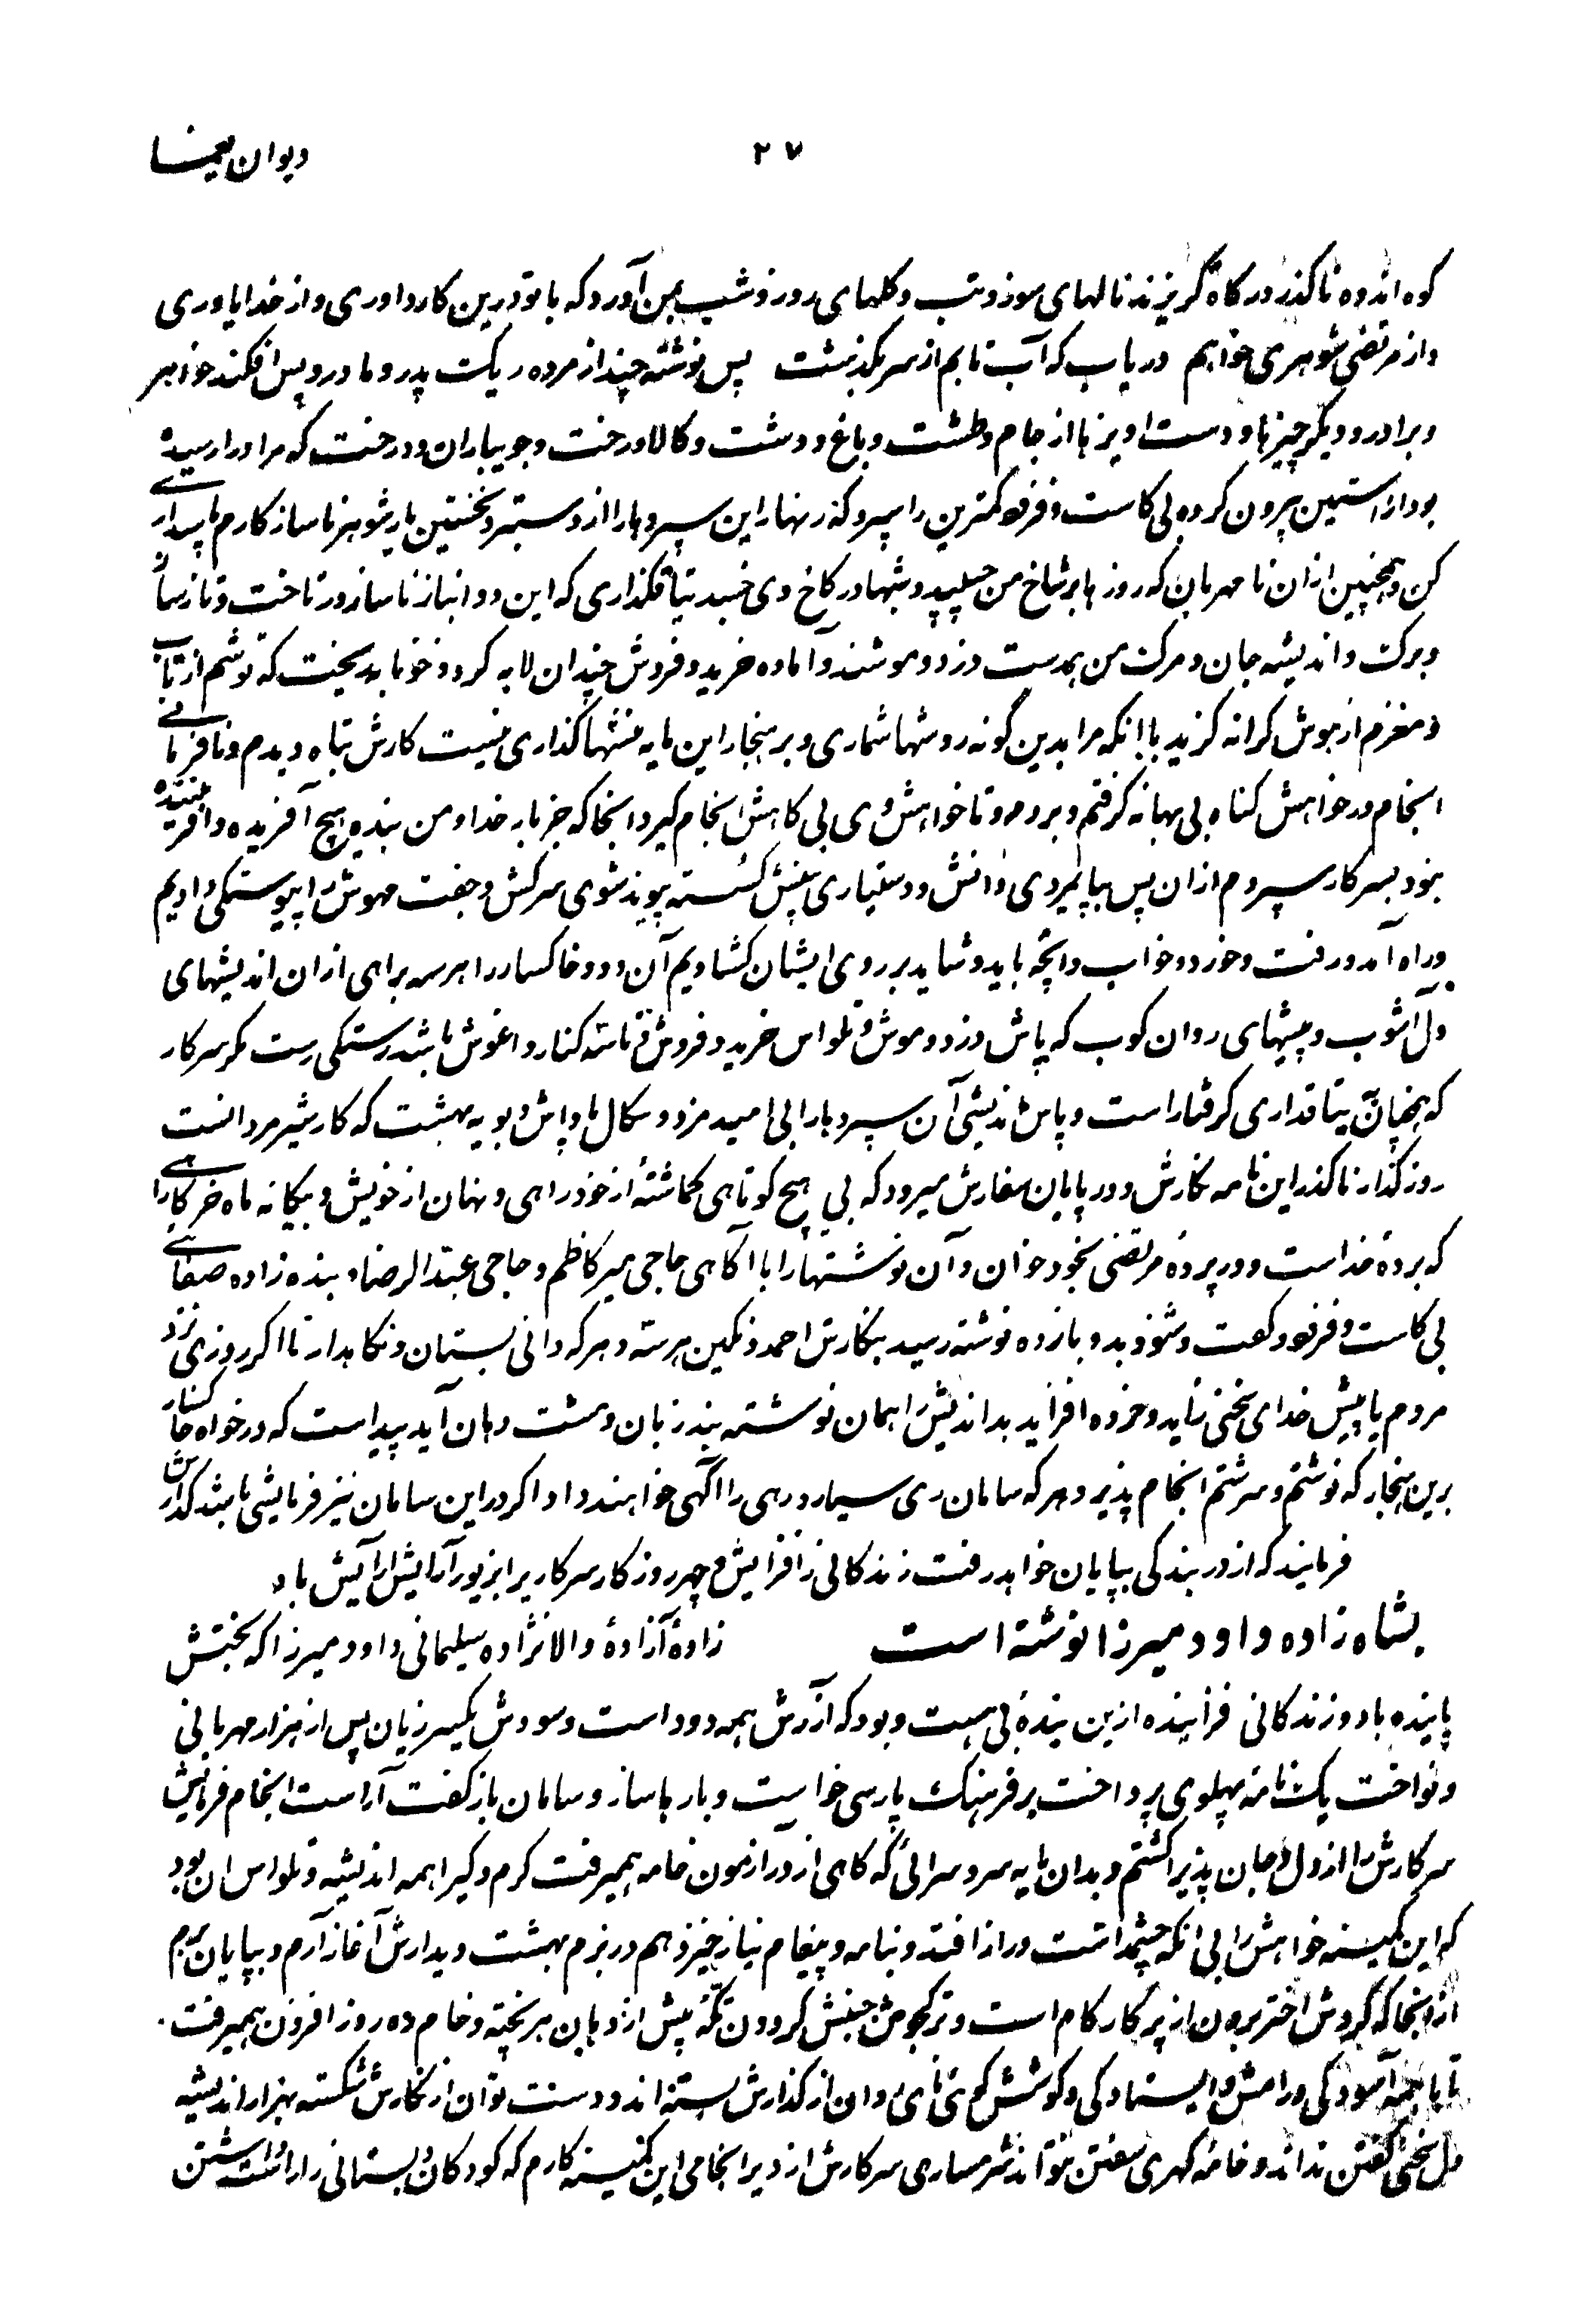 ۲۷
دیوان یغما
کوه اندوه ناگذر در کاه گریزنده نالهای سوز و تب و گلهای روز و شب بمن آورد که با تو درین کار داوری و از خدا یاوری
و از مرتضی شوهری خواهم دریاب که آب تابم از سر بگذشت پس نوشته چند از مرده ریگ پدر و مادر و پس افکند خواهر
و برادر و دیگر چیزها و دست اویزها از جام و طشت و باغ و دشت و کالا و رخت و جویباران و درخت که مر او را رسیده
بود از استین برون کرده بی کاست و فزود کمترین را سپرد که زنهار این سپردها را از دستبرد نخستین یار شوهر ناسازگارم پاسداری
کن و همچنین ازان نامهربان که روزها بر شاخ من چسپید و شبها در کاخ وی خسبد تیاقگذاری که این دو انباز ناساز در تاخت و تاز ساز
و برگ و اندیشه جان و مرگ من همدست دزد و موشند و آماده خرید و فروش چندان لابه کرد و خونابه ریخت که توشم از تاب
و مغزم از هوش کرانه گزید با انکه مرا بدین گونه روشها شماری و بر هنجار این مایه منشها گذاری نیست کارش تباه دیدم و نافرمانی
انجام درخواهش گناه بی بهانه گرفتم و بر در مرو تا خواهش وی بی کاهش انجام گیرد انجا که جز بار خدا و من بنده هیچ آفریده و آفریننده
نبود بسرکار سپردم ازان پس بپایمردی دانش و دستیاری بینش گسسته پیوند شوی سرکش و جفت مهوش را پیوستگی دادیم
و راه آمد و رفت و خورد و خواب و انچه باید و شاید بر روی ایشان گشادیم آن دو خاکسار را هر سه براهی ازان اندیشهای
دل آشوب و پیشهای روان کوب که پاش دزد و موش و تلواس خرید و فروش و تاسه کنار و اغوش باشد رستگی رست مگر سرکار
که همچنان تیاقداری گرفتار است و پاس اندیشی آن سپردها را بی امید مزد و سگال پاداش و بویه بهشت که کار شیر مردانست
روزگذار ناگذر این نامه نگارش و در پایان سفارش میرود که بی هیچ کوتاهی گماشته از خود راهی و نهان از خویش و بیگانه ماه خرگاهی را
که برده خداست و در پرده مرتضی بخود خوان و آن نوشتها را با آگاهی حاجی میر کاظم و حاجی عبدالرضا و بنده زاده صفائی
بی کاست و فزود گفت و شنود بدو باز ده نوشته رسید بنگارش احمد و نگین هر سه و هر که دانی بستان و نگاهدار تا اگر روزی نزد
مردم یا پیش خدای سخنی زاید و خرده افزاید بداندیش را همان نوشته بند زبان و مشت دهان آید پیداست که درخواه خاکسار
برین هنجار که نوشتم و سرشتم انجام پذیرد و هر که سامان ری سپارد رهی را آگهی خواهند داد اگر در این سامان نیز فرمایشی باشد گذارش
فرمایند که از در بندگی بپایان خواهد رفت زندگانی ز افزایش و چهر روزگار سرکار برابر زیور آرایش ارایش باد
بشاهزاده داود میرزا نوشته است
زاده آزاده والانژاده سلیمانی داود میرزا که بختش
پاینده باد و زندگانی فزاینده ازین بنده بی هست و بود که آذرش همه دود است و سودش یکسر زیان پس از هزار مهربانی
و نواخت یک نامه پهلوی پرداخت بر فرهنگ پارسی خواست و بارها ساز و سامان باز گفت آراست انجام فرمایش
سرکارش را از دل و جان پذیرا گشتم و بدان پایه سر و سرائی که گاهی از در ازمون خامه همیرفت گرم و گیرا همه اندیشه و تلواس ان بود
که این کمینه خواهش را بی انکه چشمداشت دراز افتد و نامه و پیغام نیاز خیزد هم در بزم بهشت دیدارش آغاز آرم و بپایان برم
از انجا که گردش اختر برون از پرگار کام است و ترکجوش جنبش گردون تکه پیش از دهان هر پخته و خام ده روز افزون همیرفت
تا با همه آسودگی و رامش و ایستادگی و کوشش گوئی نای روان از گذارش بسته اند و دست توان از نگارش شکسته بهزار اندیشه
دل سخنی گفتن نداند و خامه گهری سفتن نتواند شرمساری سرکارش از دیر انجامی این کمینه کارم که کودکان دبستانی را داشتن